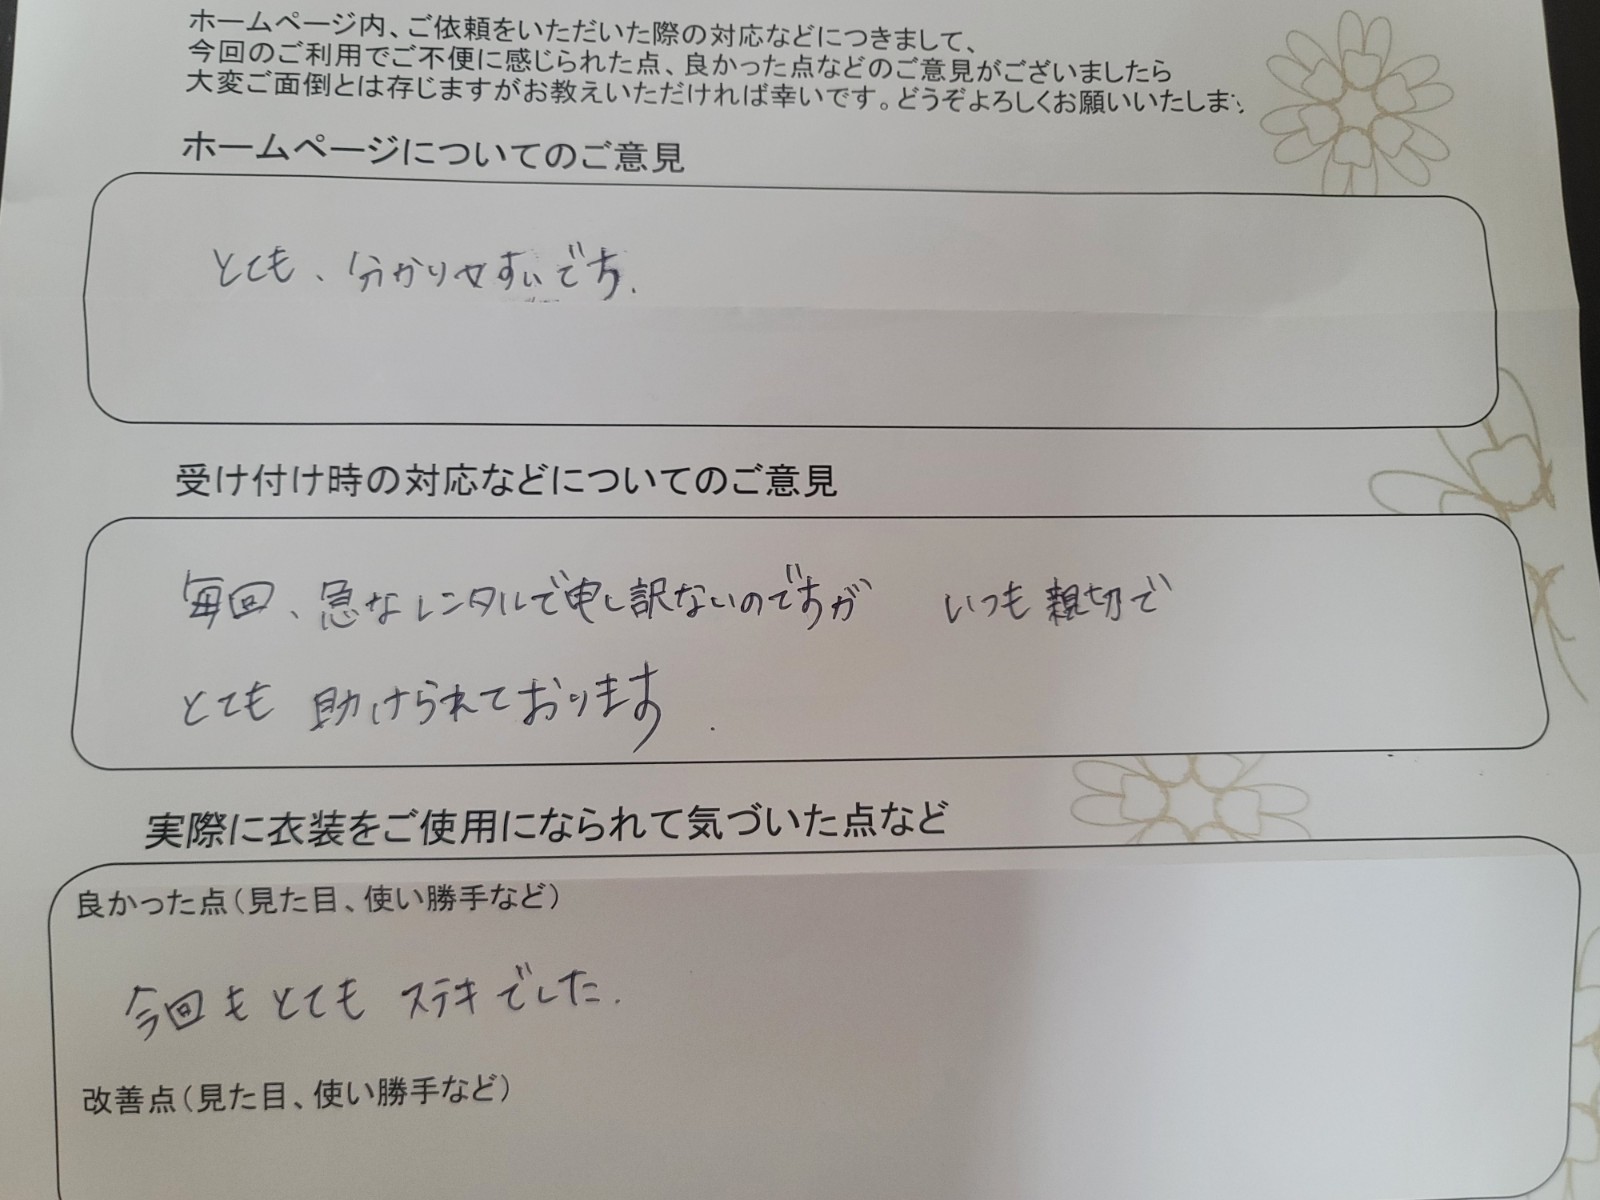 ホームページ内、ご依頼をいただいた際の対応などにつきまして、
今回のご利用でご不便に感じられた点、良かった点などのご意見がございましたら
大変ご面倒とは存じますがお教えいただければ幸いです。どうぞよろしくお願いいたします
ホームページについてのご意見
とても、分かりやすいです.
受け付け時の対応などについてのご意見
毎回、急なレンタルで申し訳ないのですが いつも親切で
とても 助けられております.
実際に衣装をご使用になられて気づいた点など
良かった点(見た目、使い勝手など)
今回もとても ステキでした.
改善点(見た目、使い勝手など)